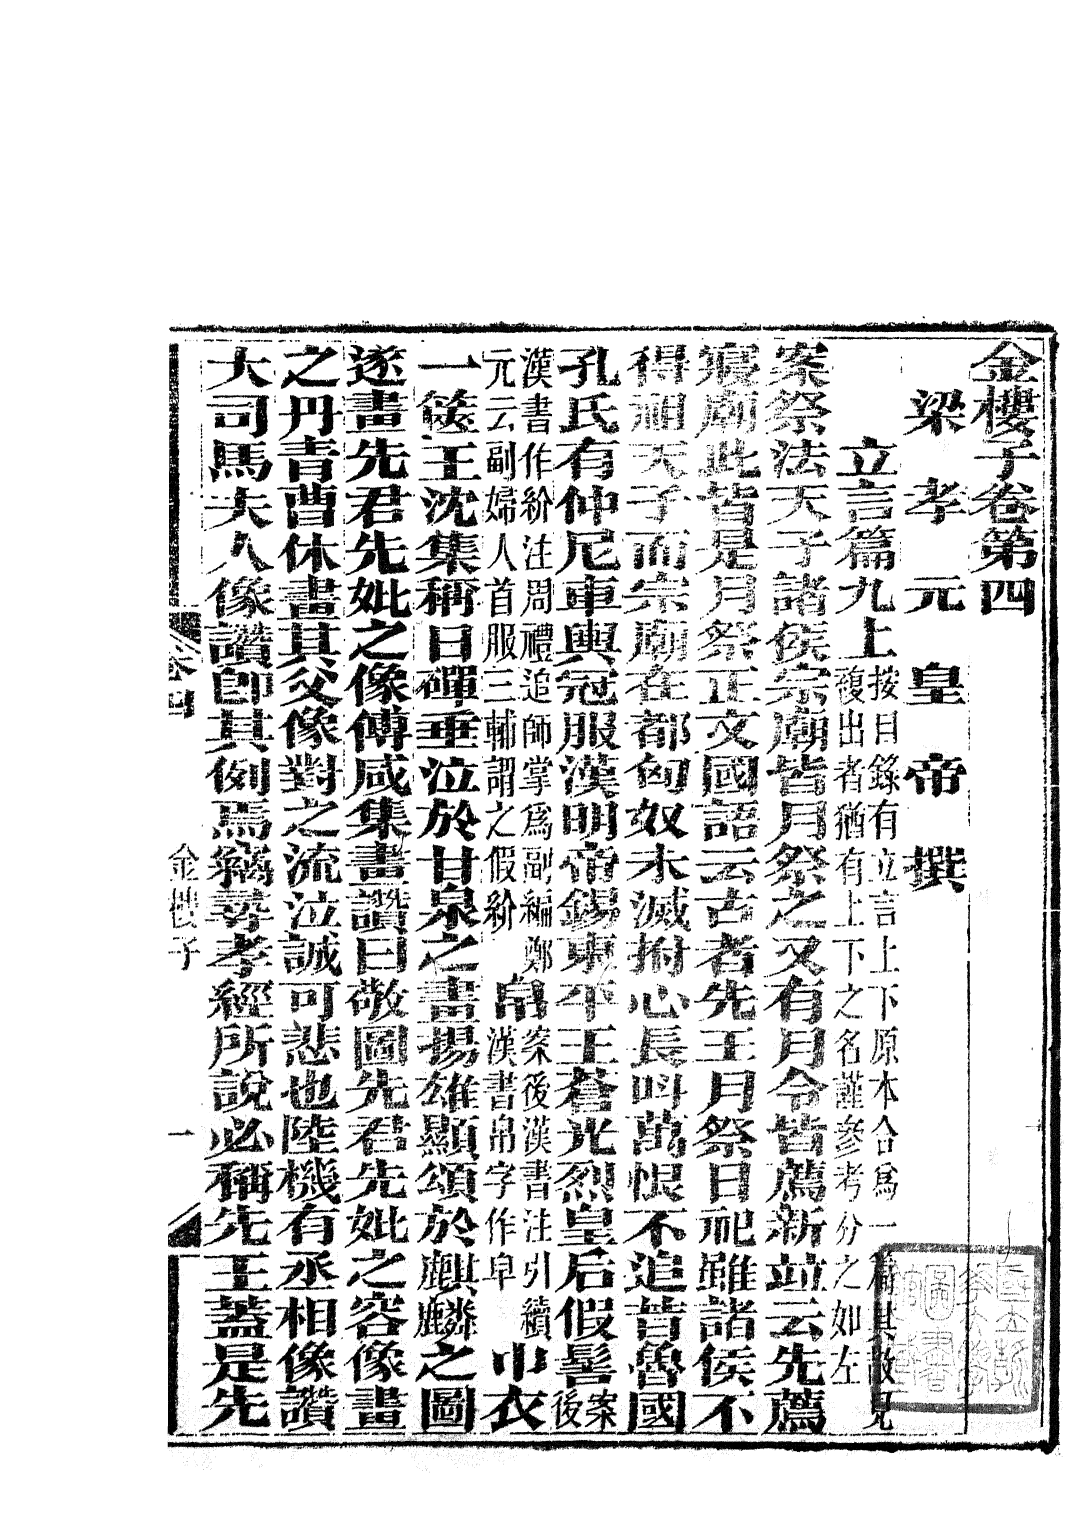 金樓子卷第四
梁孝元皇帝撰
立言篇九上按目錄有立言上下原本合爲一篇其散見
複出者猶有上下之名謹參考分之如左
案祭法天子諸侯宗廟皆月祭之又有月令皆薦新竝云先薦
寢廟此皆是月祭正文國語云古者先王月祭日祀雖諸侯不
得祖天子而宗廟在都匈奴未滅拊心長叫萬恨不追昔魯國
孔氏有仲尼車輿冠服漢明帝錫東平王蒼光烈皇后假髻案後
漢書作紒注周禮追師掌爲副編鄭
元云副婦人首服三輔謂之假紒
帛案後漢書注引續
漢書帛字作皁
巾衣
一篋王沈集稱日磾垂泣於甘泉之畫揚雄顯頌於麒麟之圖
遂畫先君先妣之像傅咸集畫讚曰敬圖先君先妣之容像畫
之丹青曹休畫其父像對之流泣誠可悲也陸機有丞相像讚
大司馬夫人像讚卽其例焉竊尋孝經所說必稱先王蓋是先
卷四
金樓子
一